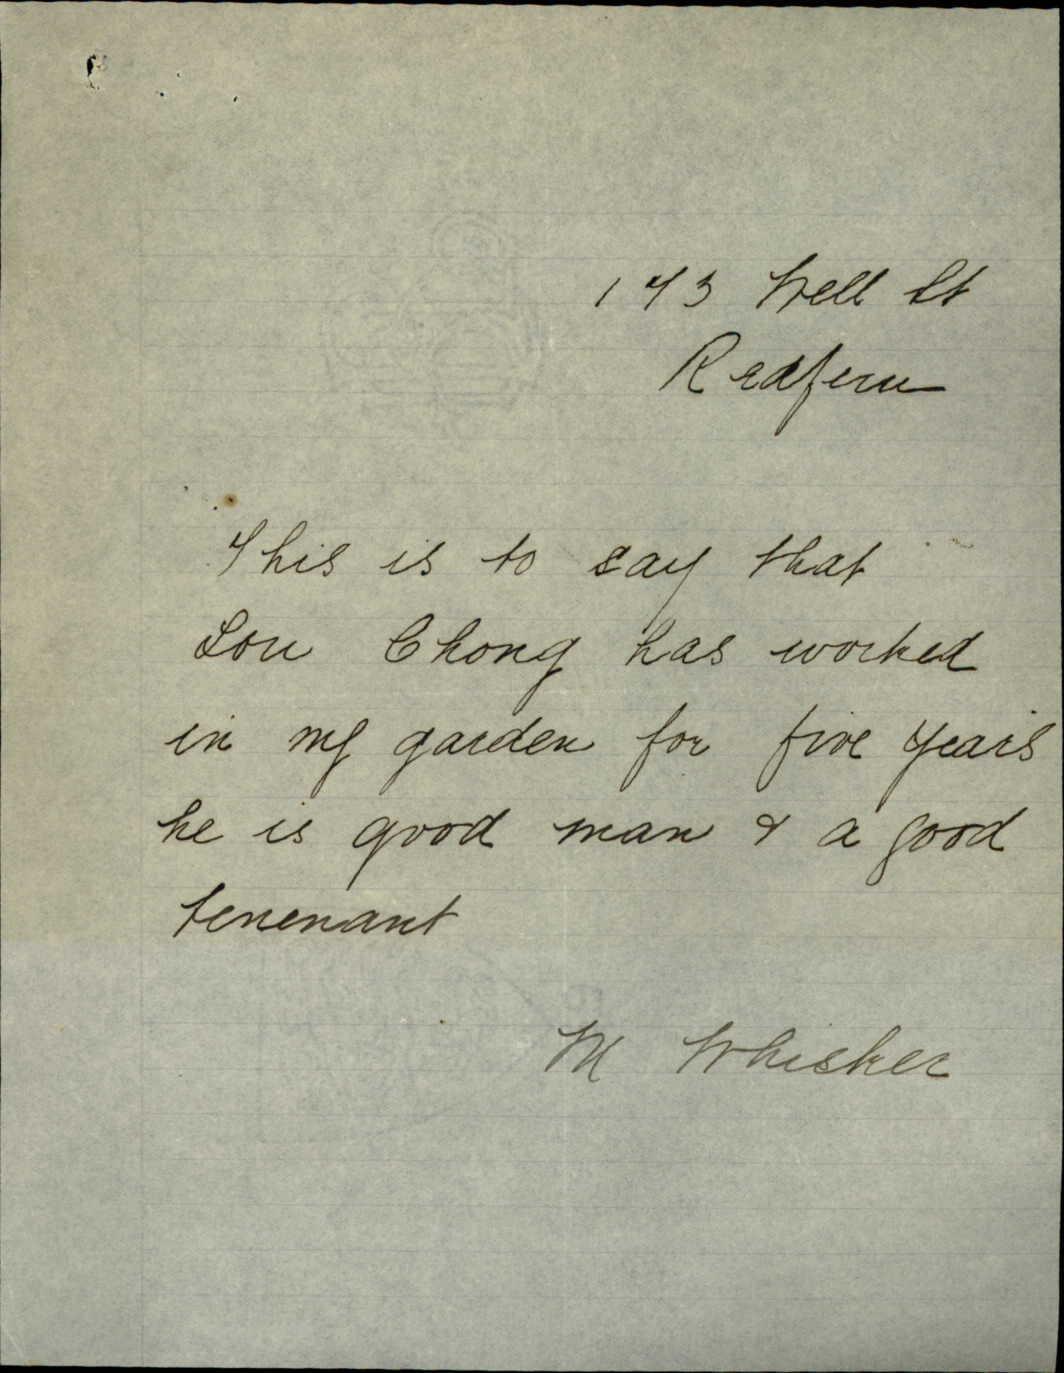 173 Well St
Redfern
This is to say that
Lou Chong has worked
in my garden for five years
he is good man & a good
tenenant
M Whisker